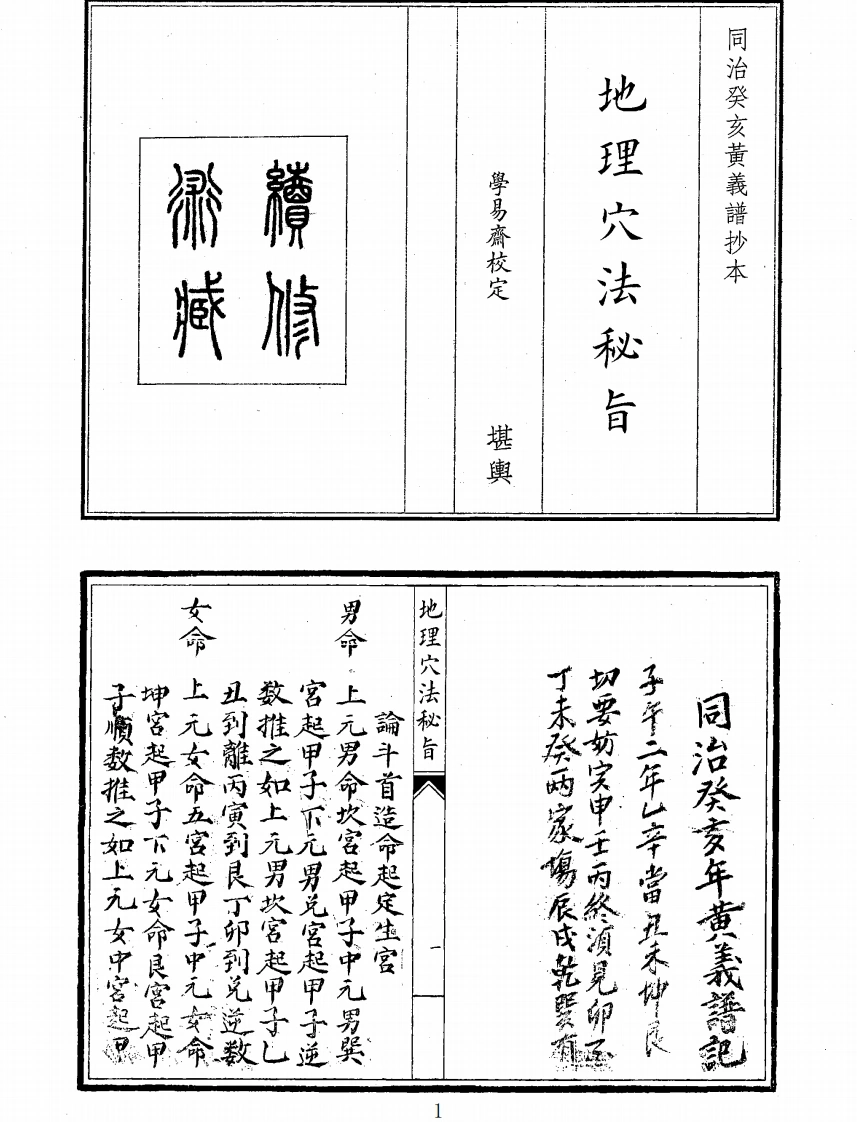 同治癸亥黃義譜抄本
地理穴法秘旨
學易齋校定 堪輿
續修
術藏
同治癸亥年黃義譜記
子午二年乙辛當丑未坤艮
切要妨寅申壬丙終須見卯
丁未癸兩家傷辰戌乾巽有
地理穴法秘旨
一
論斗首造命起定生宮
男命 上元男命坎宮起甲子中元男巽
宮起甲子下元男兌宮起甲子逆
数推之如上元男坎宮起甲子乙
丑到離丙寅到艮丁卯到兌逆数
女命 上元女命五宮起甲子中元女命
坤宮起甲子下元女命艮宮起甲
子順数推之如上元女中宮起甲
1